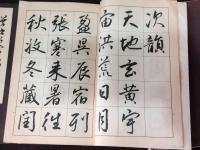 次韻
天地玄黄宇
宙洪荒日月
盈昃辰宿列
張寒来暑往
秋收冬藏閏